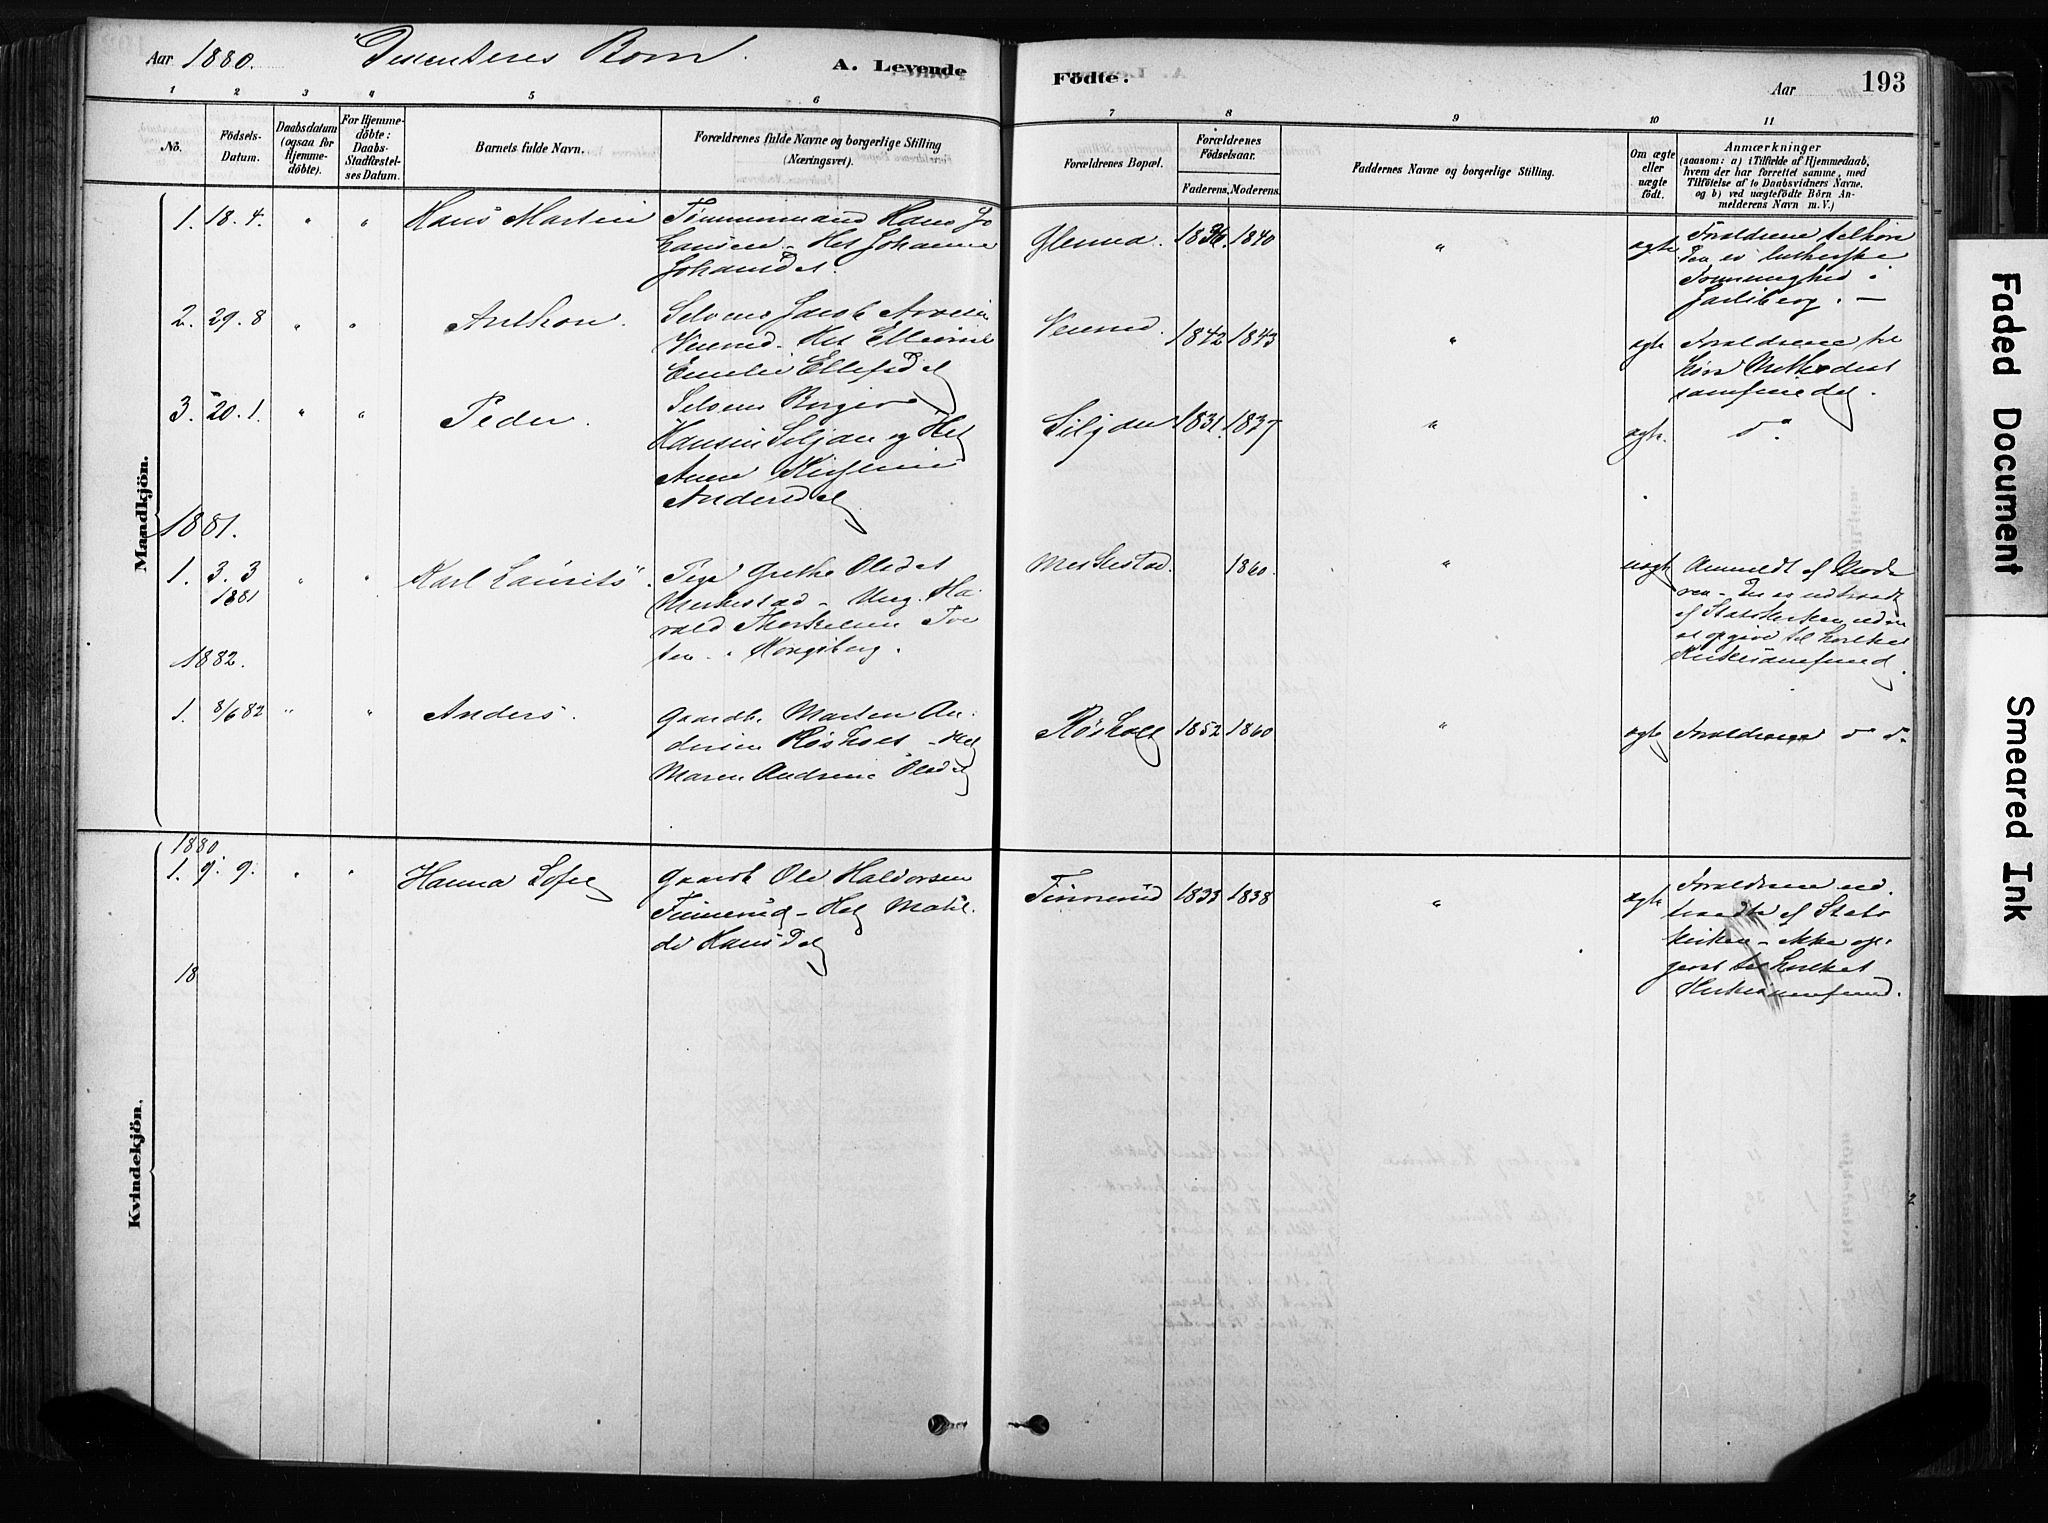 Aar 1880. Dissenteres Børn.
A. Levende Fødte.
Aar 193
1 2 3 4 5 6 7 8 9 10 11
No.
Födsels-
Datum.
Daabsdatum
(ogsaa for
Hjemme-
døbte).
For Hjemme-
döbte:
Daabs-
Stadfæstel-
ses Datum.
Barnets fulde Navn.
Forældrenes fulde Navne og borgerlige Stilling
(Næringsvei).
Forældrenes Bopæl.
Forældrenes
Födselsaar.
Faderens. Moderens.
Faddernes Navne og borgerlige Stilling.
Om ægte
eller
uægte
födt.
Anmærkninger
(saasom: a) i Tilfælde af Hjemmedaab,
hvem der har forrettet samme, med
Tilföielse af to Daabsvidners Navne,
og b) ved uægtefödte Börn An-
melderens Navn m. V.)
Maandkjön.
1. 18. 4. " " Hans Martin
Tømmermand Hans Jo
hansen - Het Johanne
Johansdt.
Glenna. 1836. 1840 " ægte
Forældrene tilhøre
Den ev lutherske
i
Jarlsberg. -
2. 29. 8 " " Anthon.
Selveier Jacob
Emilie Ellefsdt
1842 1843 " ægte
Forældrene til
hører Methodist
samfundet.
3. 20. 1. " " Peder.
Selveier
Hansen Siljan og Het
Anne
Andersdt
Siljan 1831. 1837 " ægte. do
1881.
1. 3. 3
1881
" " Karl Laurits
Pige Grethe Olsdt
Merkestad - Ung. Ha-
rald
i Kongsberg.
Merkestad 1860. " uægte
Anmeldt af Mode
ren - Der er udtraadt
af Statskirken uden
at opgive til hvilket
Kirkesamfund.
1882.
1. 8/6 82 " " Anders.
Gaardb. Morten An-
dersen Røsholt - Het
Maren Andrine Olsdt
Røsholt 1852 1860 " ægte Forældrene do do
Kvindekjön.
1880
1. 9. 9. " " Hanna Sofie
Gaardb Ole Haldorsen
Finnerud - Het Mathil
de Hansdt
Finnerud 1833 1838 " ægte
Forældrene ud-
traadte af Stats
kirken - ikke op-
givet til hvilket
Kirkesamfund.
18
Faded Document
Smeared Ink